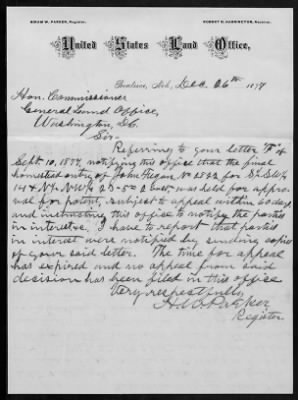 HIRAM W. PARKER, Register. ROBERT B. HARRINGTON, Receiver.
United States Land Office,
Beatrice, Neb., Dec. 26th 1877
Hon. Commissioner
General Land Office,
Washington, D.C.
Sir:
Referring to your letter "F" of
Sept. 10, 1877, notifying this office that the final
homestead entry of John Fegan No 2532 for S½ SW¼
14 & N½ NW¼ 23-5-2 East, was held for appro-
val for patent, subject to appeal within 60 days
and instructing this office to notify the parties
in interest, I have to report that parties
in interest were notified by sending copies
of your said letter. The time for appeal
has expired and no appeal from said
decision has been filed in this office
Very respectfully,
H. W. Parker
Register